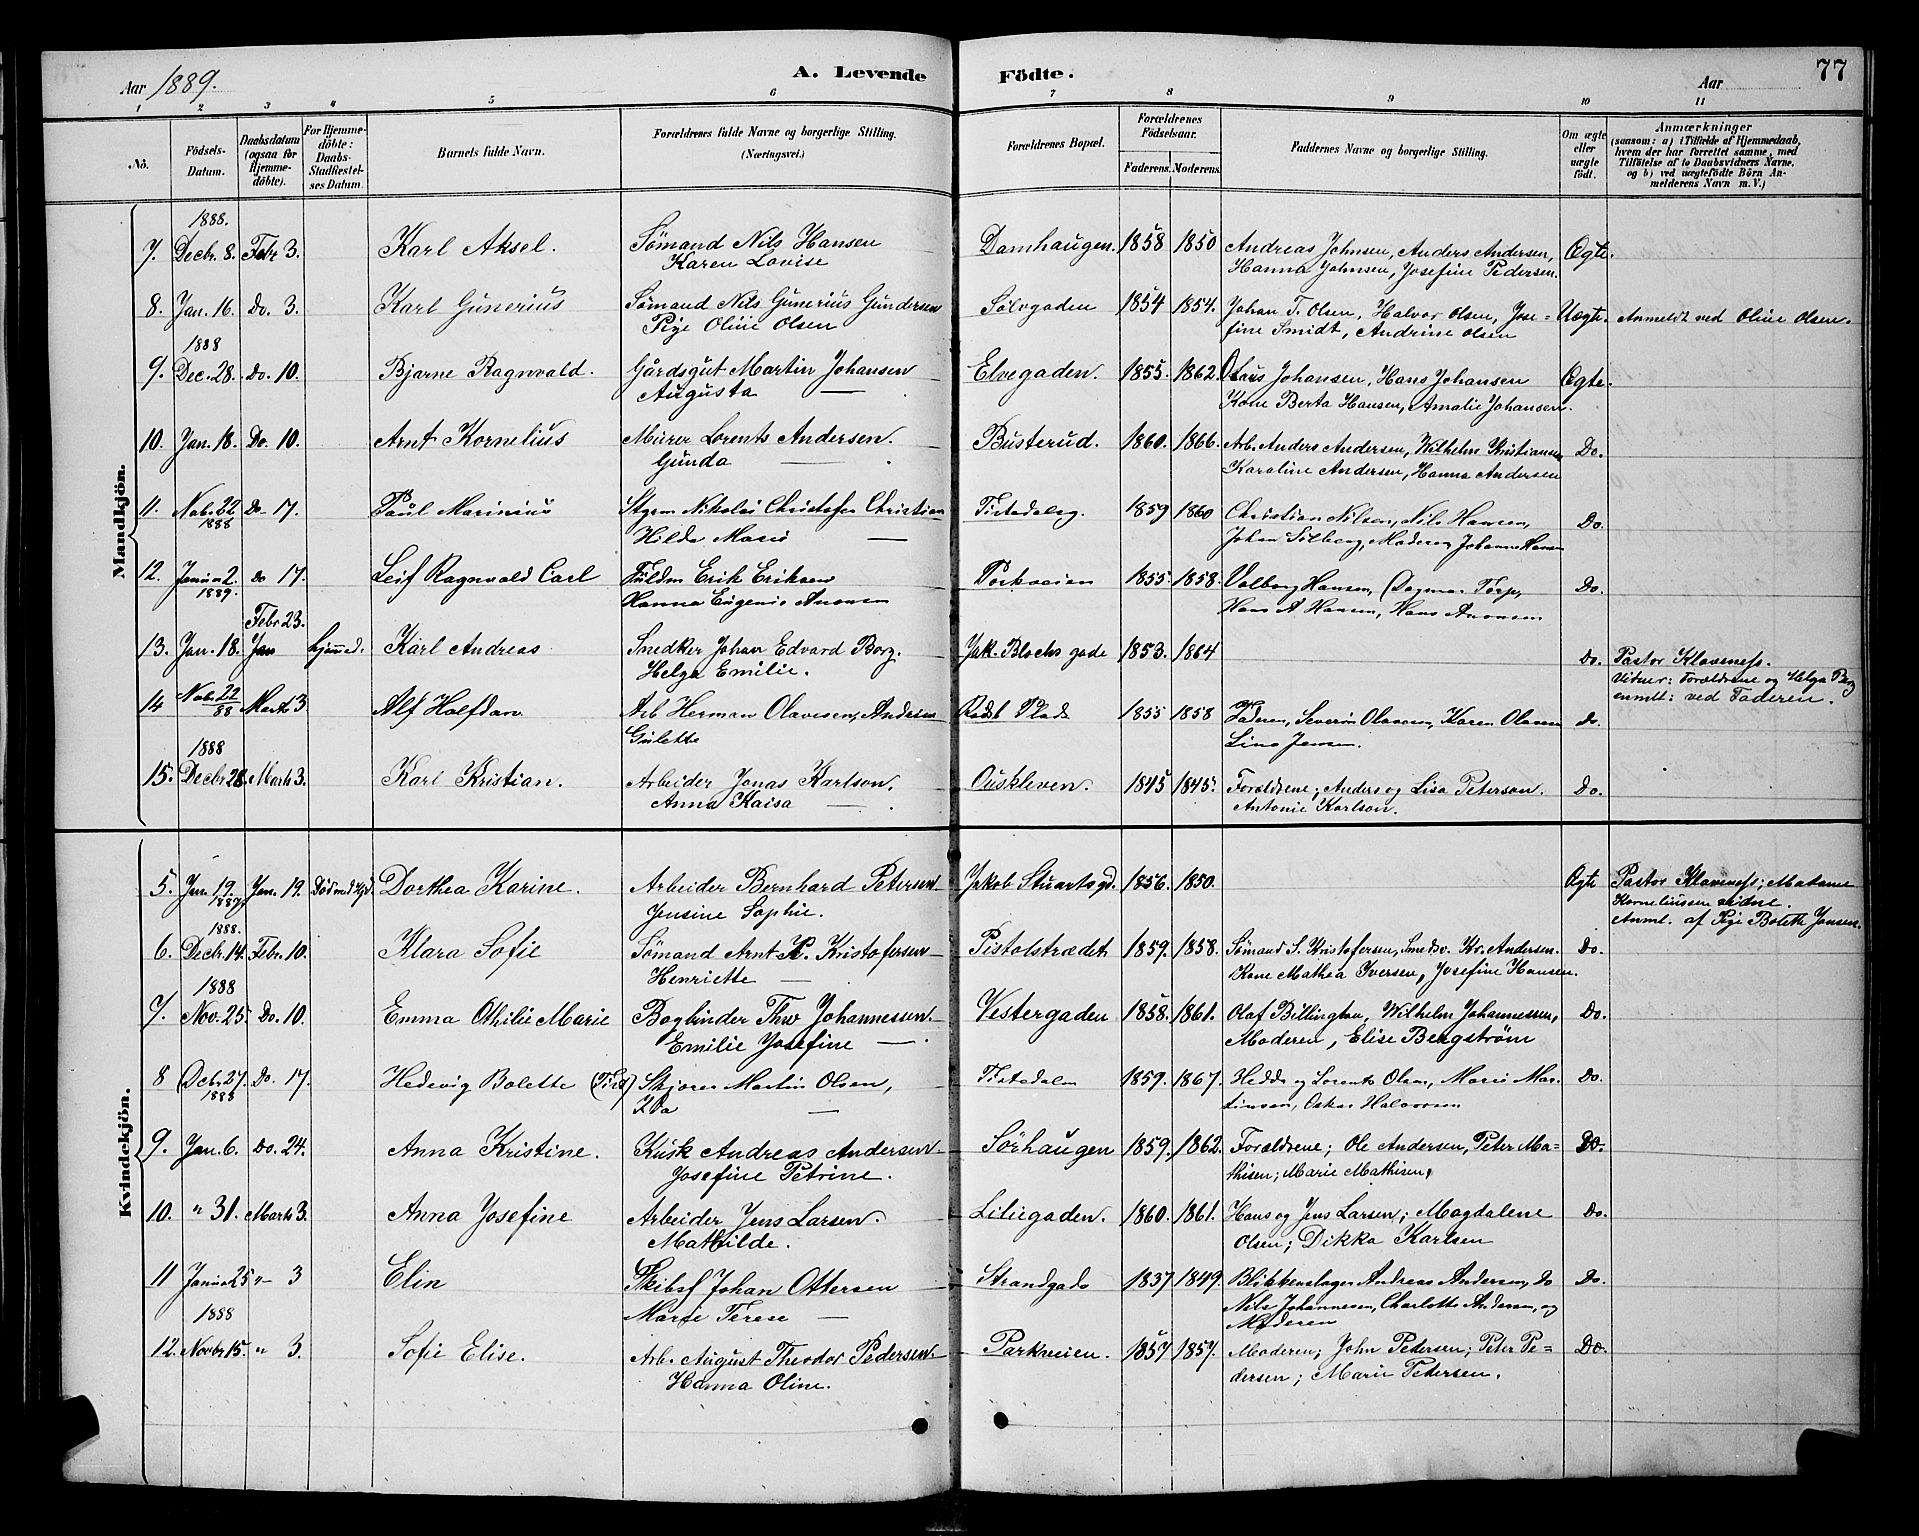 Aar 1889.
A. Levende Födte.
Aar
77
1 2 3 4 5 6 7 8 9 10 11
No.
Födsels-Datum.
Daabsdatum (ogsaa for Hjemmedöbte).
For Hjemmedöbte: Daabs-Stadfæstelses Datum.
Barnets fulde Navn.
Forældrenes fulde Navne og borgerlige Stilling. (Næringsvei.)
Forældrenes Bopæl.
Forældrenes Födselsaar.
Faderens. Moderens.
Faddernes Navne og borgerlige Stilling.
Om ægte eller uægte födt.
Anmærkninger
(saasom: a) i Tilfælde af Hjemmedaab, hvem der har forrettet samme, med Tilföielse af to Daabsvidners Navne, og b) ved uægtefödte Börn Anmelderens Navn m. V.)
Mandkjön.
1888.
7. Decbr. 8. Febr 3. Karl Aksel. Sömand Nils Hansen Damhaugen. 1858 1850 Andreas Johnsen, Anders Andersen, Ægte.
Karen Lovise Hanna Johnsen, Josefine Pedersen.
8. Jan. 16. Do. 3. Karl Gunerius Sömand Nils Gunerius Gundersen Sölvgaden 1854 1854. Johan T. Olsen, Halvor Olsen, Jose= Uægte. Anmeldt ved Oline Olsen.
Pige Oline Olsen fine Smidt, Andrine Olsen
1888
9. Dec. 28. Do. 10. Bjarne Ragnvald. Gårdsgut Martin Johansen Elvegaden. 1855. 1862. Olaus Johansen, Hans Johansen Ægte.
Augusta — Kone Berta Hansen, Amalie Johansen.
10. Jan. 18. Do. 10. Arnt Kornelius Murer Lorents Andersen. Busterud. 1860. 1866. Arb. Anders Andersen, Wilhelm Kristiansen Do.
Gunda — Karoline Andersen, Hanna Andersen
11. Nobr. 22 Do 17. Paul Marinius Nikolai Christofer Christian Tistedalsg. 1859 1860 Christian Nilsen, Nils Hansen, Do.
1888 Hilda Marie — Johan Sölberg, Moderen, Johanne Hansen
12. Janua 2. Do 17. Leif Ragnvald Carl Erik Eriksen Parkveien 1855 1858. Valborg Hansen, Dagmar Torp, Do.
1889. Hanna Eugenie Hans A Hansen, Hans
Febr 23.
13. Jan. 18. Jan hjemmed. Karl Andreas Snedker Johan Edvard Borg. Jak. Blochs gade 1853. 1864 Do. Pastor Klaveness.
Helga Emilie. Vidner: Forældrene og Helga Borg
anmlt: ved Faderen.
14 Nobr. 22/88 Marts 3 Alf Halfdan Arb Herman Olavesen, Andrine 1855 1858 Faderen, Severin Olavesen, Karen Olavesen Do.
Gulette Lina Jensen.
1888
15. Decbr. 28. Marts 3. Karl Kristian. Arbeider Jonas Karlson. Ouskleven. 1845 1845. Forældrene; Anders og Lisa Peterson. Do.
Anna Kaisa — Antonie Karlson.
Kvindekjön.
5. Jan. 19. Jan. 19. Död Dorthea Karine. Arbeider Bernhard Petersen Jakob Stuartsgd. 1856. 1850. Ægte Pastor Klaveness; Madame
1889 Jensine Sophie. Korneliussen vidne.
Anml. af Pige Bolette Jansen.
1888.
6. Decbr. 14. Febr. 10. Klara Sofie Sömand Arnt K. Kristofersen Pistolstrædet 1859. 1858. Sömand S. Kristofersen, Smedsv. Kr. Andersen. Do.
Henriette — Kone Mathea Iversen, Josefine Hansen.
1888
7. Nov. 25. Do. 10. Emma Othilie Marie Bogbinder Thv Johannessen. Vestergaden 1858. 1861. Olaf Billington, Wilhelm Johannessen, Do.
Emilie Josefine — Moderen, Elise Bergström
8 Decbr 27. Do. 17. Hedevig Bolette (Tisd) Skjorer Martin Olsen, Tistedalen 1859. 1867. Hedda og Lorents Olsen, Marie Mar- Do.
1888 Ida — tinsen, Oskar Halvorsen
9. Jan. 6. Do. 24. Anna Kristine. Kusk Andreas Andersen Sörhaugen 1859. 1862. Forældrene; Ole Andersen, Peter Ma= Do.
Josefine Petrine. thisen; Marie Mathisen.
10. " 31. Marts 3. Anna Josefine Arbeider Jens Larsen. Liliegaden. 1860. 1861. Hans og Jens Larsen; Magdalene Do.
Mathilde. Olsen; Dikka Karlsen
11 Janua 25 " 3 Elin Skibsf Johan Ottersen Strandgade 1837 1849. Blikkenslager Andreas Andersen, Do Do.
Marie Terese — Nils Johannesen, Charlotte Andersen, og
Moderen
1888
12. Novbr. 15. " 3. Sofie Elise. Arb. August Theodor Pedersen. Parkveien. 1857 1857. Moderen; John Petersen; Peter Pe= Do.
Hanna Oline. dersen; Marie Petersen.